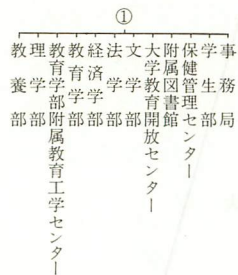 ①
事務局
学生部
保健管理センター
附属図書館
大学教育開放センター
文学部
法学部
経済学部
教育学部
教育学部附属教育工学センター
理学部
教養部